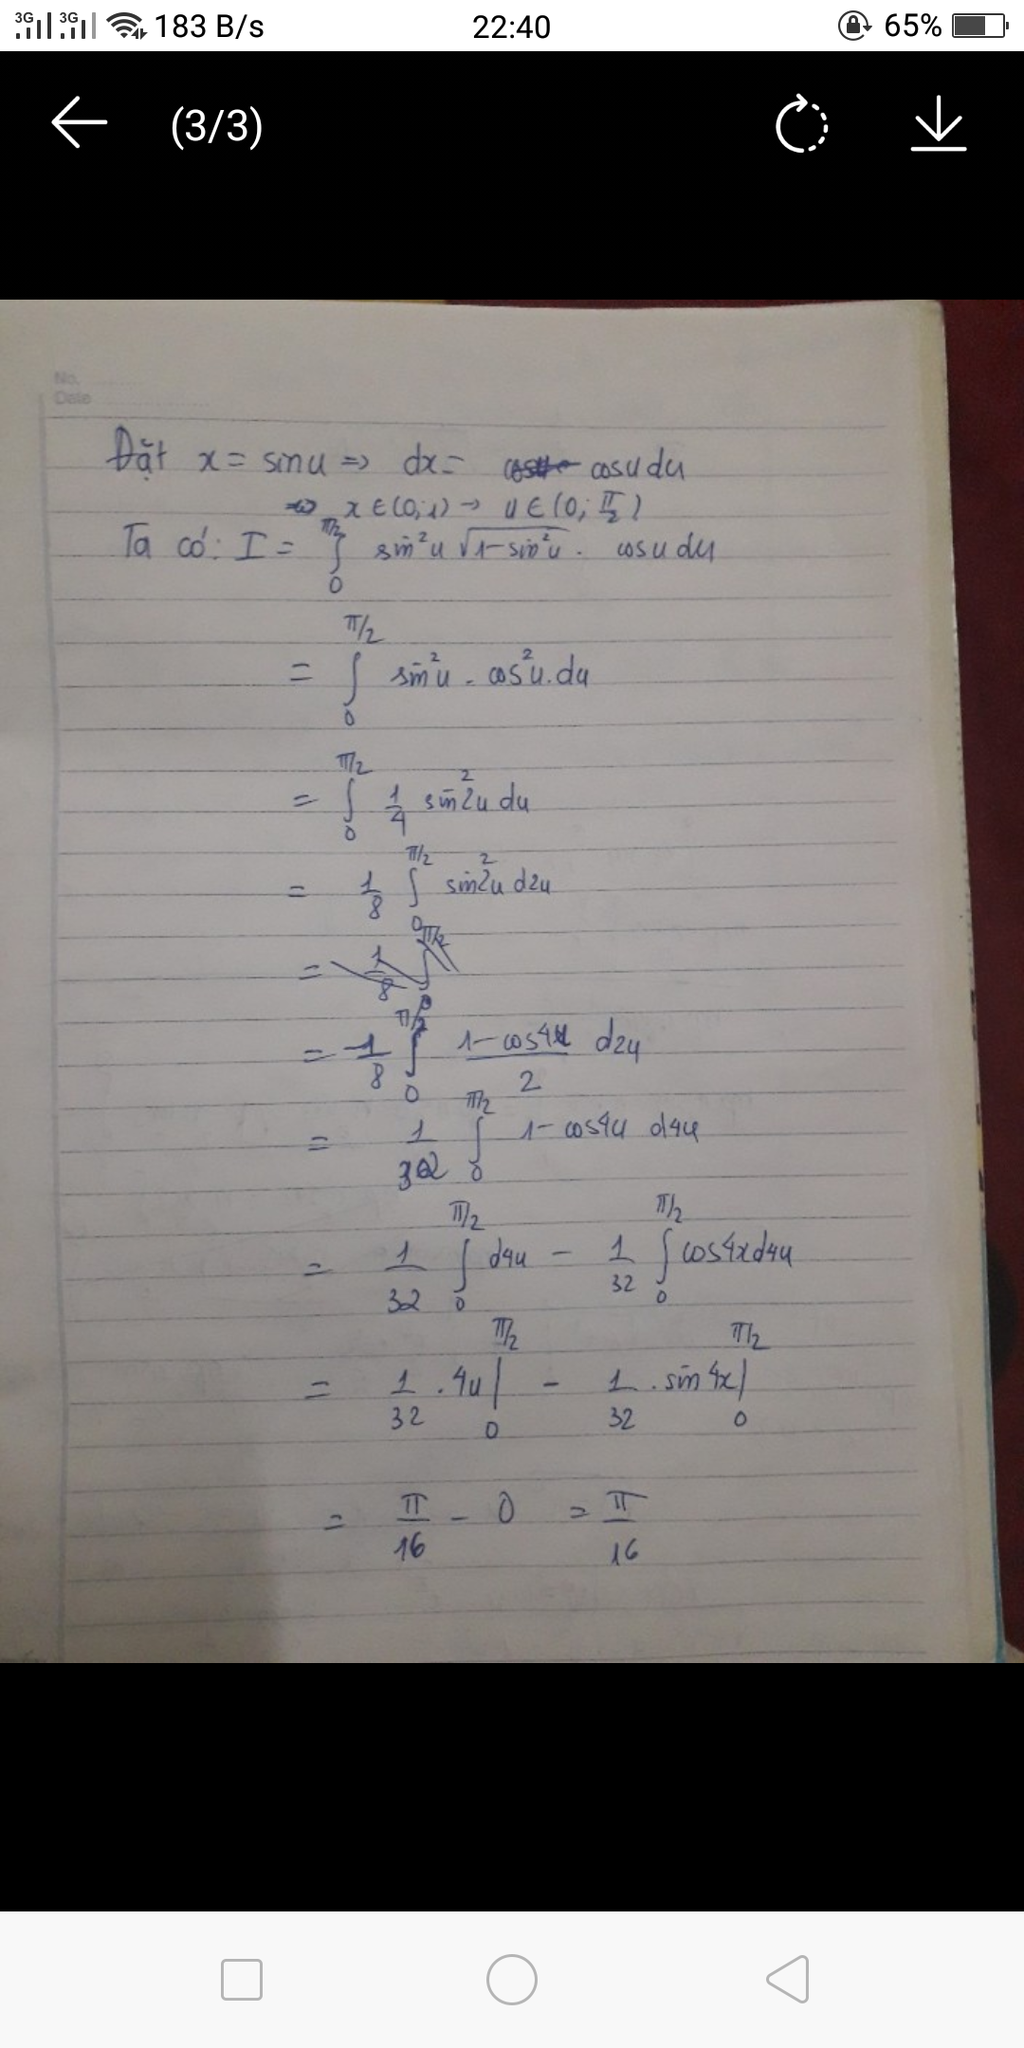 3G 3G 183 B/s 22:40 65%
(3/3)
No.
Date
Đặt x = sinu => dx = cosu du
x ∈ (0;1) → u ∈ (0; π/2)
Ta có: I = ∫₀^(π/2) sin²u √(1-sin²u) . cosu du
= ∫₀^(π/2) sin²u . cos²u . du
= ∫₀^(π/2) 1/4 sin²2u du
= 1/8 ∫₀^(π/2) sin²2u d2u
= 1/8 ∫₀^(π/2)
= 1/8 ∫₀^(π/2) (1-cos4u)/2 d2u
= 1/32 ∫₀^(π/2) 1-cos4u d4u
= 1/32 ∫₀^(π/2) d4u - 1/32 ∫₀^(π/2) cos4x d4u
= 1/32 . 4u |₀^(π/2) - 1/32 . sin4x |₀^(π/2)
= π/16 - 0 = π/16